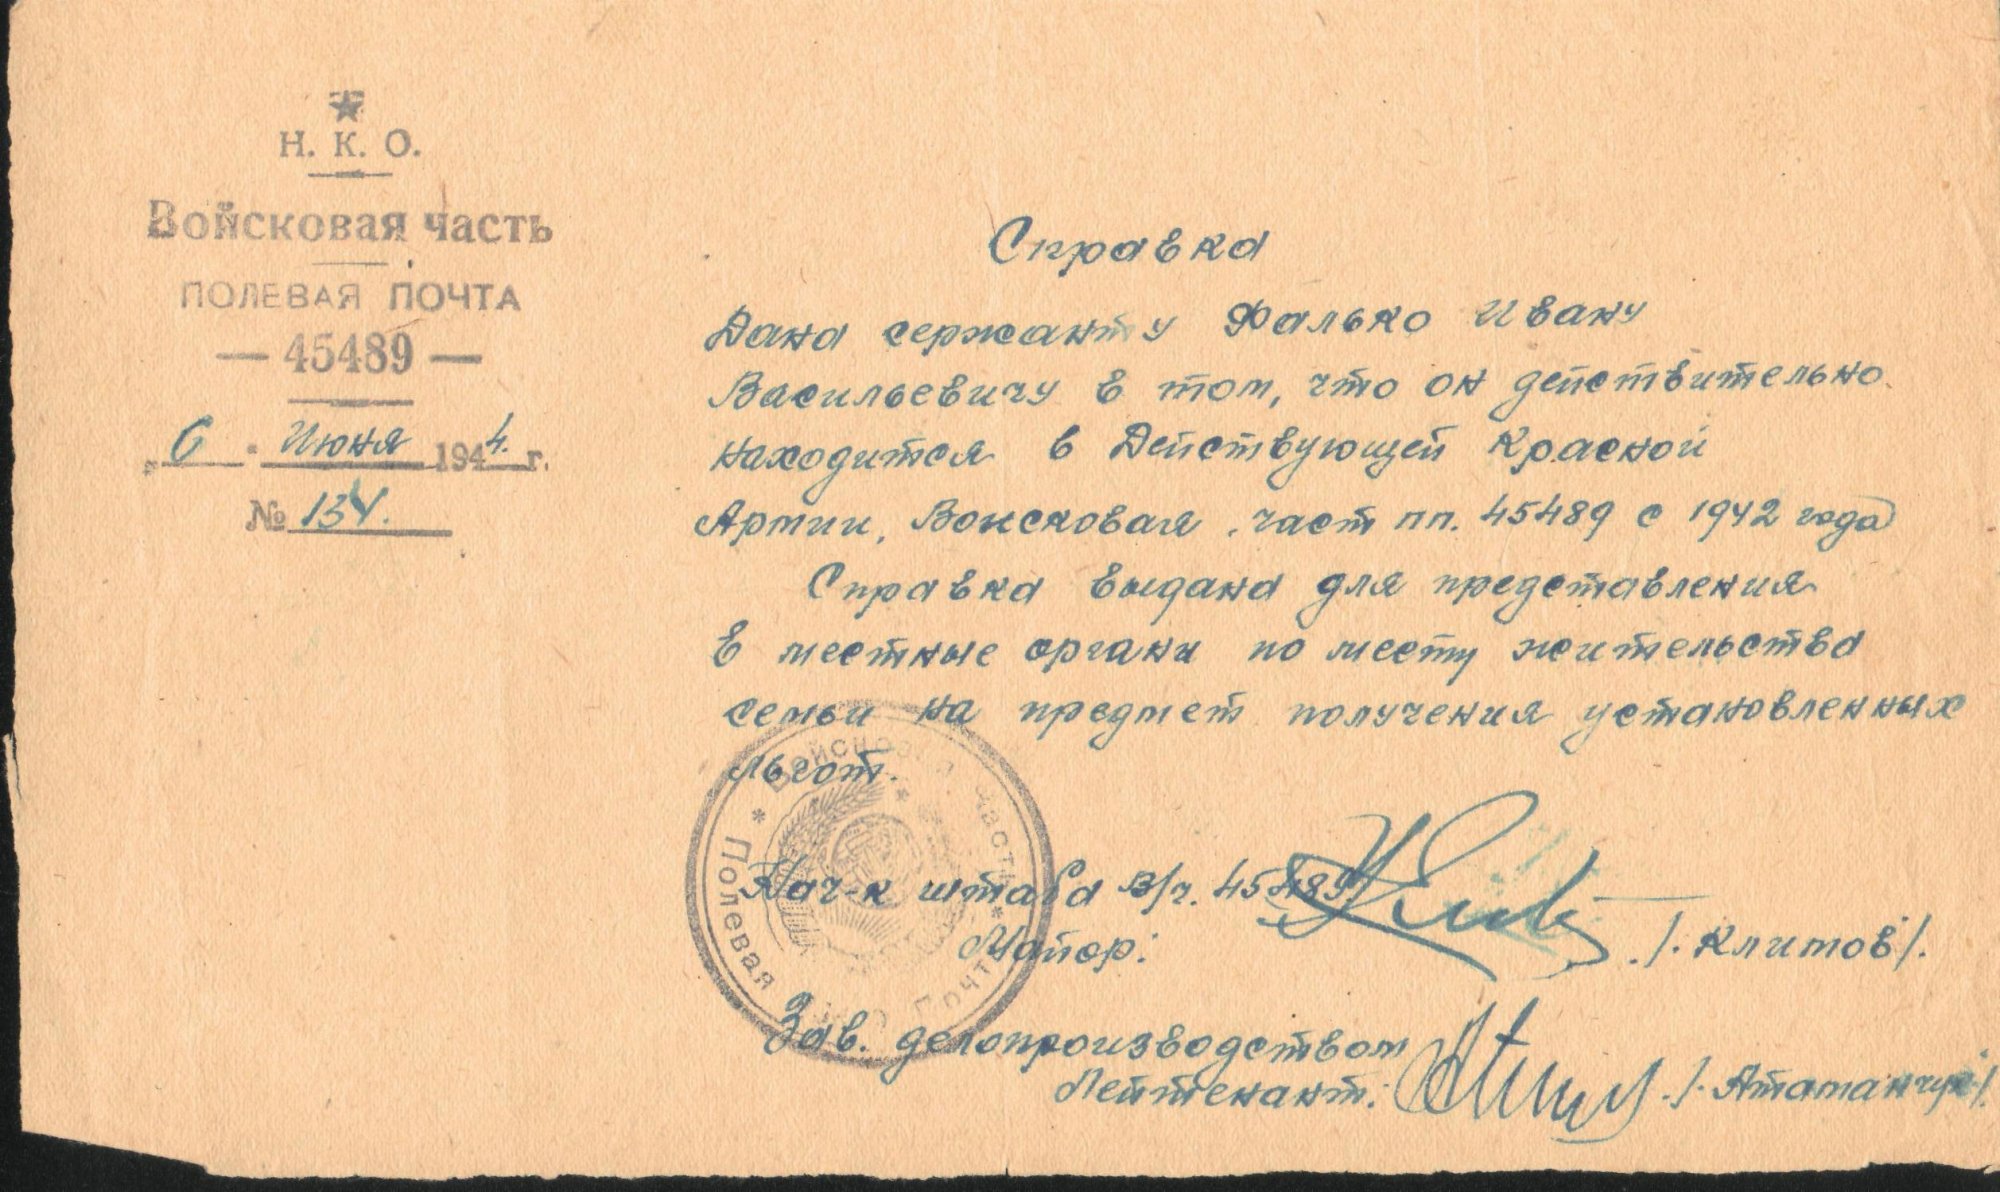 Н. К. О.
Войсковая часть
ПОЛЕВАЯ ПОЧТА
— 45489 —
„ 6 " Июня 1944. г.
№ 134.
Справка
Дана сержанту Фалько Ивану
Васильевичу в том, что он действительно
находится в Действующей Красной
Армии, Воисковая част пп. 45489 с 1942 года
Справка выдана для представления
в местные органы по месту жительства
семьи на предмет получения установленных
льгот.
Нач-к штаба В/ч. 45489
Майор: /. Климов /.
Зав. делопроизводством
Лейтенант: /. Атаманчук /.
* Войсковая часть *
Полевая Почта